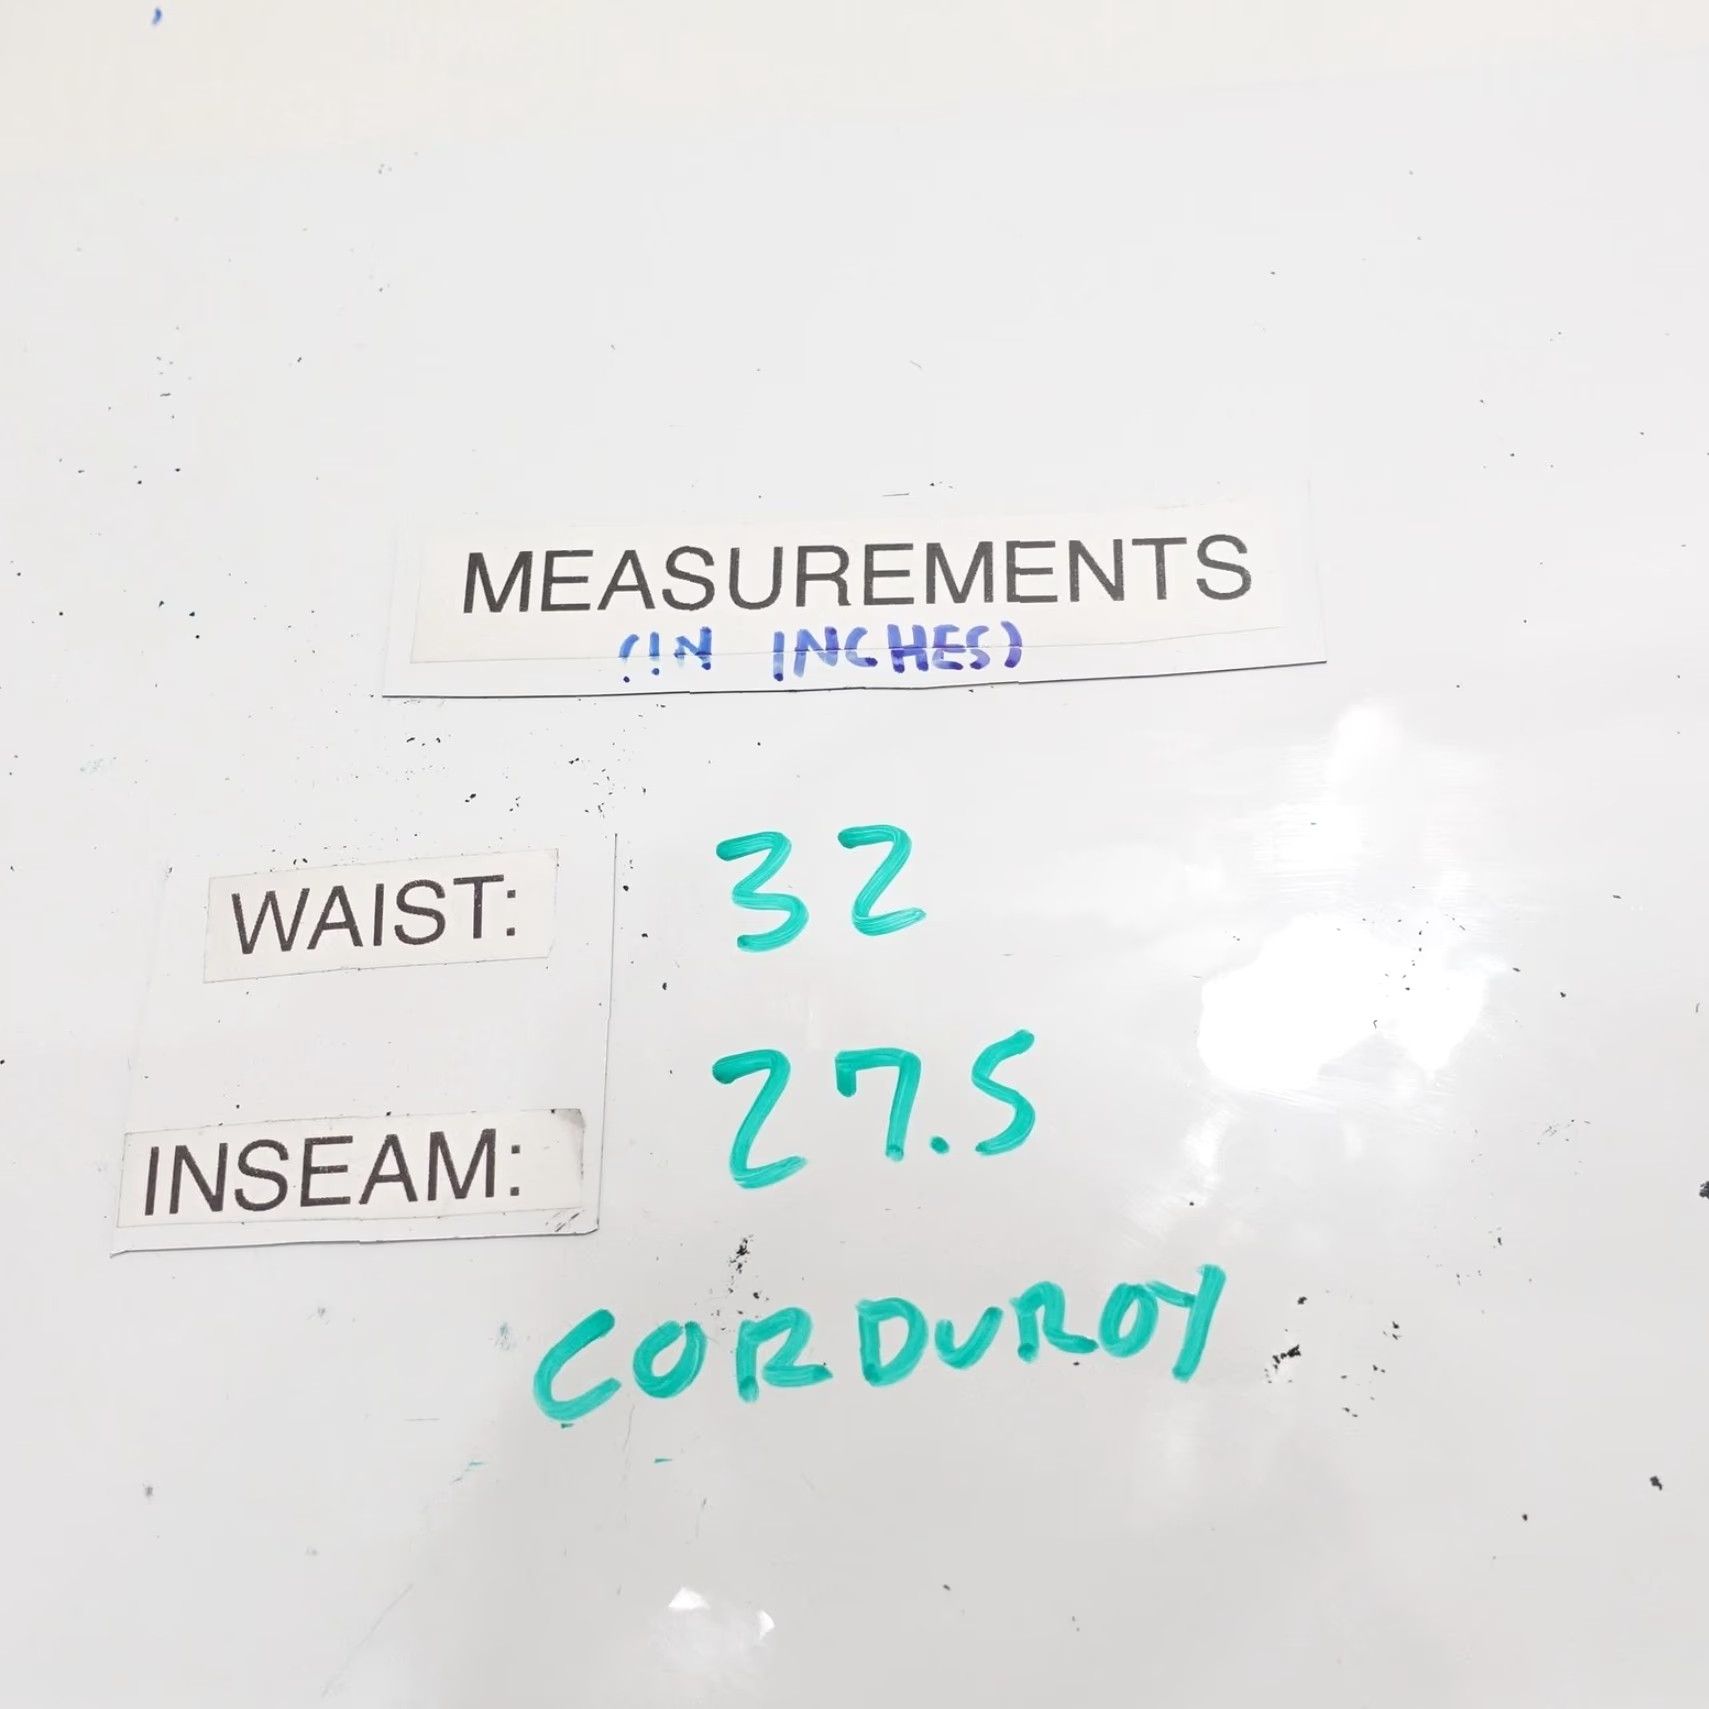 MEASUREMENTS
(IN INCHES)
WAIST: 32
INSEAM: 27.5
CORDUROY